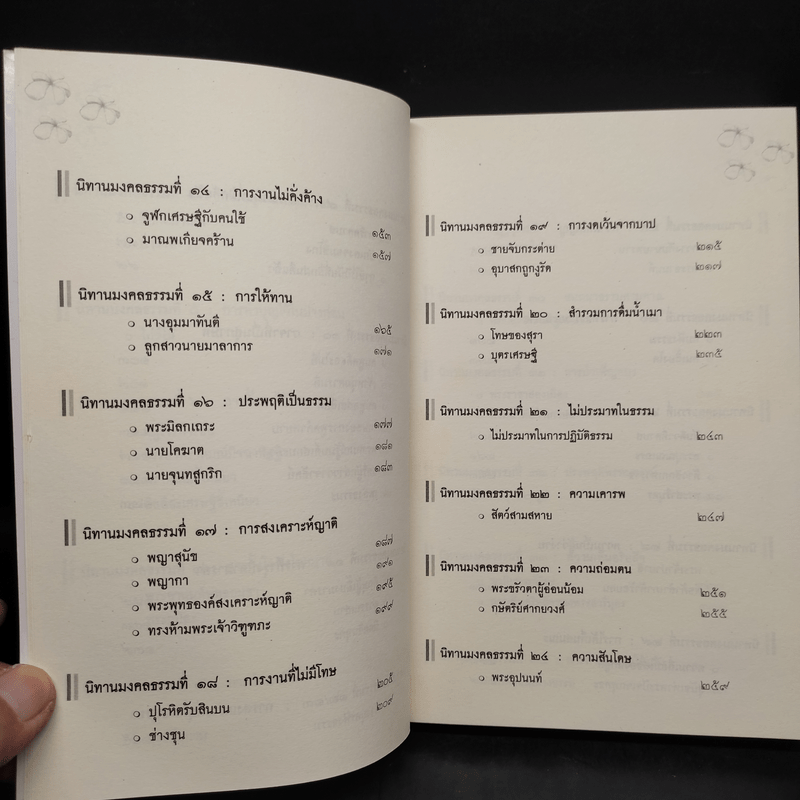 นิทานมงคลธรรมที่ ๑๔ : การงานไม่คั่งค้าง
จูฬกเศรษฐีกับคนใช้ ๑๕๓
มาณพเกียจคร้าน ๑๕๗
นิทานมงคลธรรมที่ ๑๕ : การให้ทาน
นางอุมมาทันตี ๑๖๕
ลูกสาวนายมาลาการ ๑๗๑
นิทานมงคลธรรมที่ ๑๖ : ประพฤติเป็นธรรม
พระมิลกเถระ ๑๗๗
นายโคฆาต ๑๘๑
นายจุนทสูกริก ๑๘๓
นิทานมงคลธรรมที่ ๑๗ : การสงเคราะห์ญาติ
พญาสุนัข ๑๘๗
พญากา ๑๙๑
พระพุทธองค์สงเคราะห์ญาติ ๑๙๕
ทรงห้ามพระเจ้าวิฑูฑภะ ๑๙๙
นิทานมงคลธรรมที่ ๑๘ : การงานที่ไม่มีโทษ
ปุโรหิตรับสินบน ๒๐๕
ช่างชุน ๒๐๙
นิทานมงคลธรรมที่ ๑๙ : การงดเว้นจากบาป
ชายจับกระต่าย ๒๑๕
อุบาสกถูกงูรัด ๒๑๗
นิทานมงคลธรรมที่ ๒๐ : สำรวมการดื่มน้ำเมา
โทษของสุรา ๒๒๓
บุตรเศรษฐี ๒๓๕
นิทานมงคลธรรมที่ ๒๑ : ไม่ประมาทในธรรม
ไม่ประมาทในการปฏิบัติธรรม ๒๔๓
นิทานมงคลธรรมที่ ๒๒ : ความเคารพ
สัตว์สามสหาย ๒๔๗
นิทานมงคลธรรมที่ ๒๓ : ความถ่อมตน
พระขรัวตาผู้อ่อนน้อม ๒๕๑
กษัตริย์ศากยวงศ์ ๒๕๕
นิทานมงคลธรรมที่ ๒๔ : ความสันโดษ
พระอุปนนท์ ๒๕๙